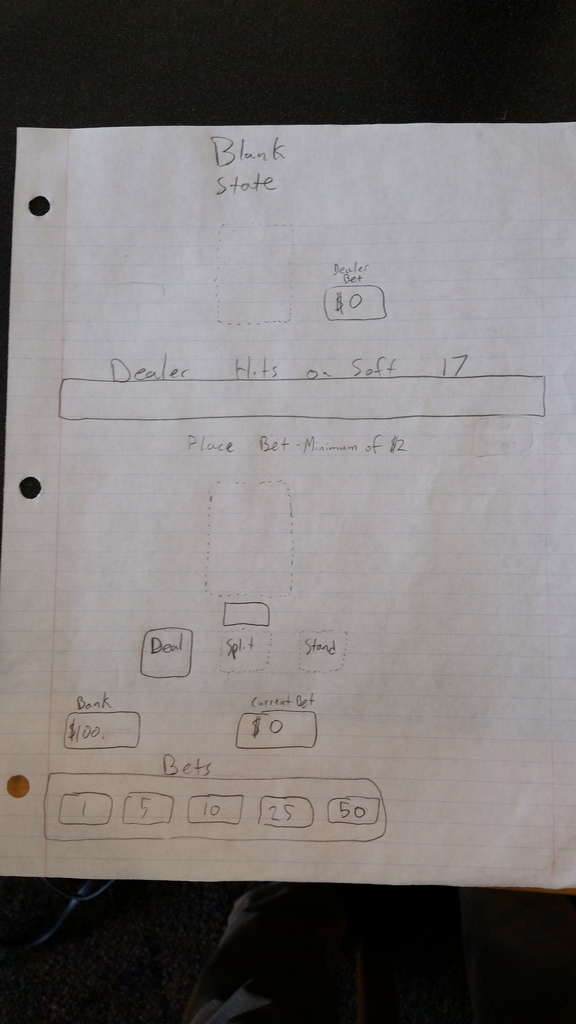 Blank
State
Dealer
Bet
$0
Dealer Hits on Soft 17
Place Bet - Minimum of $2
Deal
Split
Stand
Bank
Current Bet
$100.
$0
Bets
1 5 10 25 50